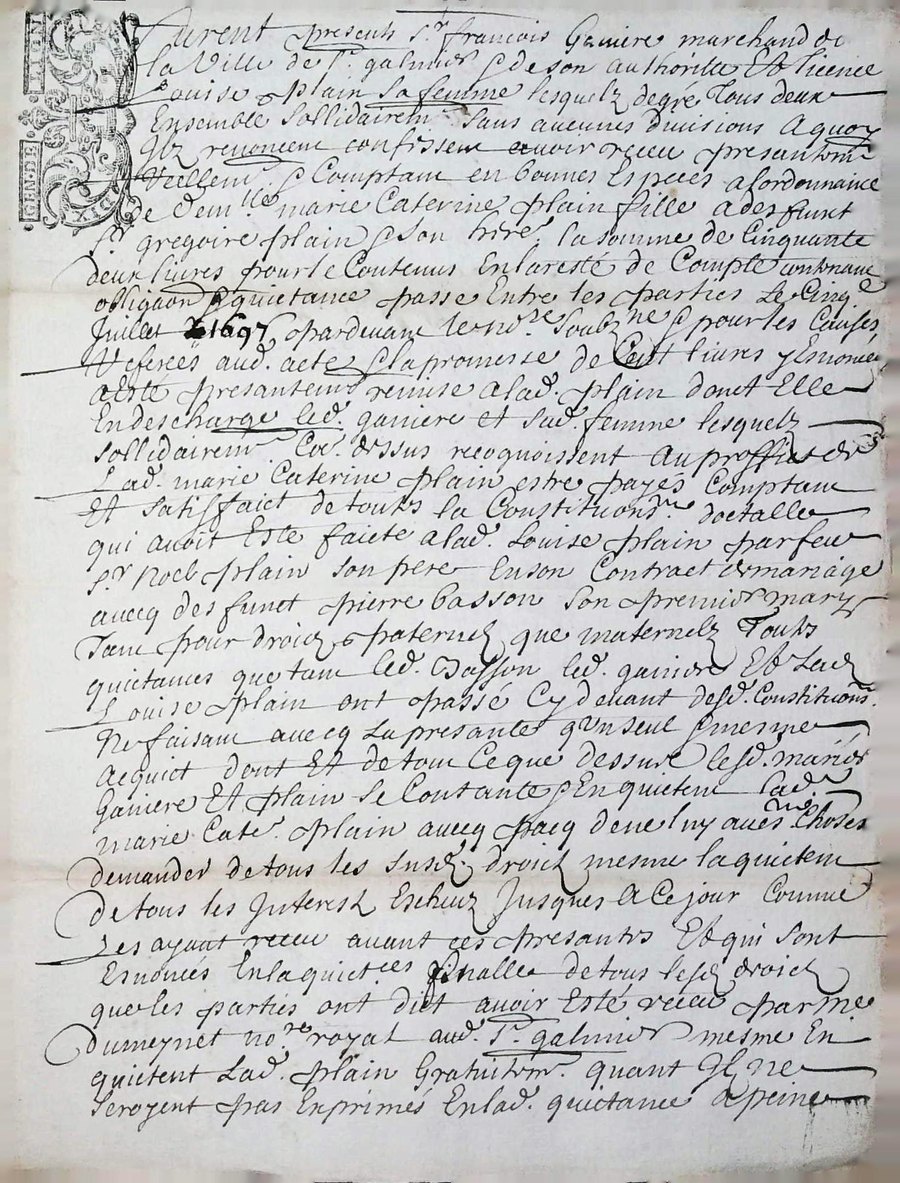 GEN. DE LION
DIX
furent presents Sr. francois Ganiere marchand de
la Ville de St. galmier & de son authoritte Et licence
Louise plain sa femme lesquelz degré Tous deux
Ensemble sollidairemt. sans aucunes divisions a quoy
Ilz renoncent confissent avoir receu presantemt.
reellemt. & Comptant en bonnes Especes a lordonnance
de demlle. marie Caterine plain fille a deffunct
Sr. gregoire plain & son here. la somme de Cinquante
deux livres pour le Contenus En laresté de Compte contenant
obligaon & quietance passe Entre les parties Le Cinqe
Juillet 1697 pardevant le nore. soubzne & pour les Causes
referees aud. acte & la promesse de Cent livres y Enonce
a Esté presantemt. remise a lad. plain dont Elle
En descharge led. ganiere et sad. femme lesquelz
sollidairemt. Coe. dessus recognoissent au proffict de
Lad. marie Caterine plain estre payés Comptant
Et satiffaict de toutes la Constitution dotalle
qui avoit Esté faicte a lad. Louise plain par feu
Sr. Noel plain son pere En son Contract de mariage
avecq deffunct pierre basson son premier mary
Tant pour droictz paternelz que maternelz Toutes
quietances que tant led. Basson led. ganiere Et Lad.
Louise plain ont passé Cy devant desd. Constitutions.
Ne faisant avecq La presante qun seul & mesme
acquict dont Et de tout Ce que dessus lesd. mariés
Ganiere Et plain se Contante & En quietent lad.
marie Cate. plain avecq pacq de ne luy Choses
demander de tous les susd. droictz mesme la quietent
de tous les Interestz Escheuz Jusques a Ce jour Comme
Les ayant receu avant ces presantes Et qui sont
Enonces En la quietces finalle de tous lesd. droictz
que les parties ont dict avoir Esté receu par me
Dumeynet nore. royal aud. St. galmier mesme En
quietent Lad. plain Gratuitemt. quant Ilz ne
seroyent pas Exprimés En lad. quietance a peine